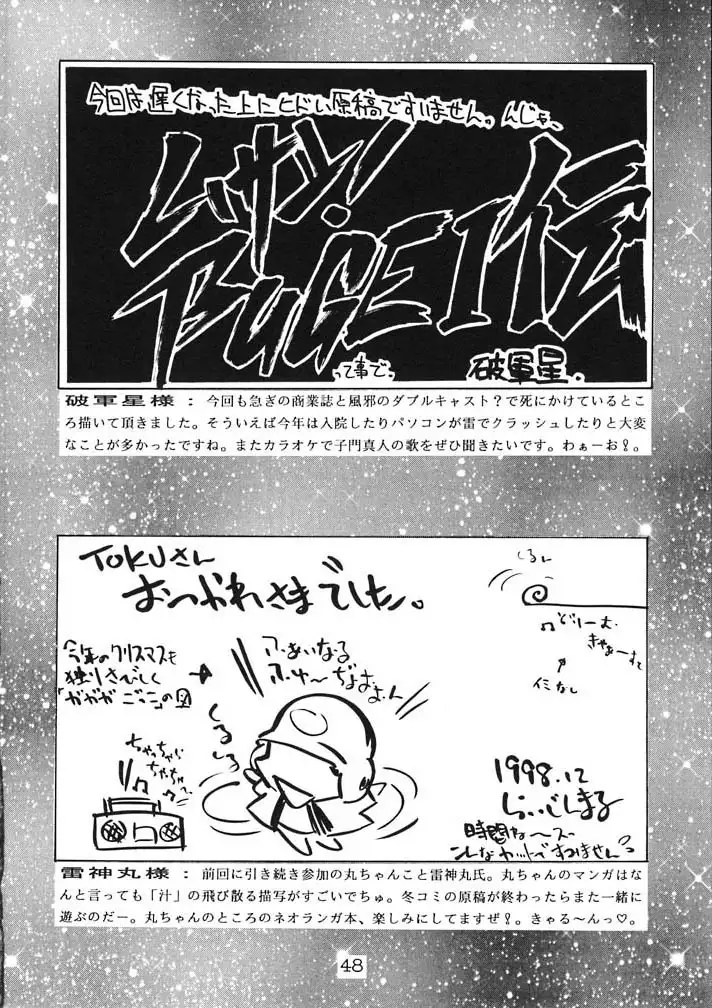 今回は遅くなった上にヒドい原稿ですいません。んじゃ、
ムサシ!
BUGEI伝
って事で。
破軍星.
破軍星様：今回も急ぎの商業誌と風邪のダブルキャスト？で死にかけているとこ
ろ描いて頂きました。そういえば今年は入院したりパソコンが雷でクラッシュしたりと大変
なことが多かったですね。またカラオケで子門真人の歌をぜひ聞きたいです。わぁーお！。
TOKUさん
おつかれさまでした。
今年のクリスマスも
独りさびしく
「ガガガごっこ」の図
ふぁいなる
ふゅ〜じょおおん
くるくる
ちゃっちゃら
ちゃっちゃ〜
くるん
♫どりーむ
きゃぁーすて
イミなし
1998.12
らいじんまる
時間な〜ス
こんなカットですみません
雷神丸様：前回に引き続き参加の丸ちゃんこと雷神丸氏。丸ちゃんのマンガはな
んと言っても「汁」の飛び散る描写がすごいでちゅ。冬コミの原稿が終わったらまた一緒に
遊ぶのだー。丸ちゃんのところのネオランガ本、楽しみにしてますぜ！。きゃる〜んっ♡。
48